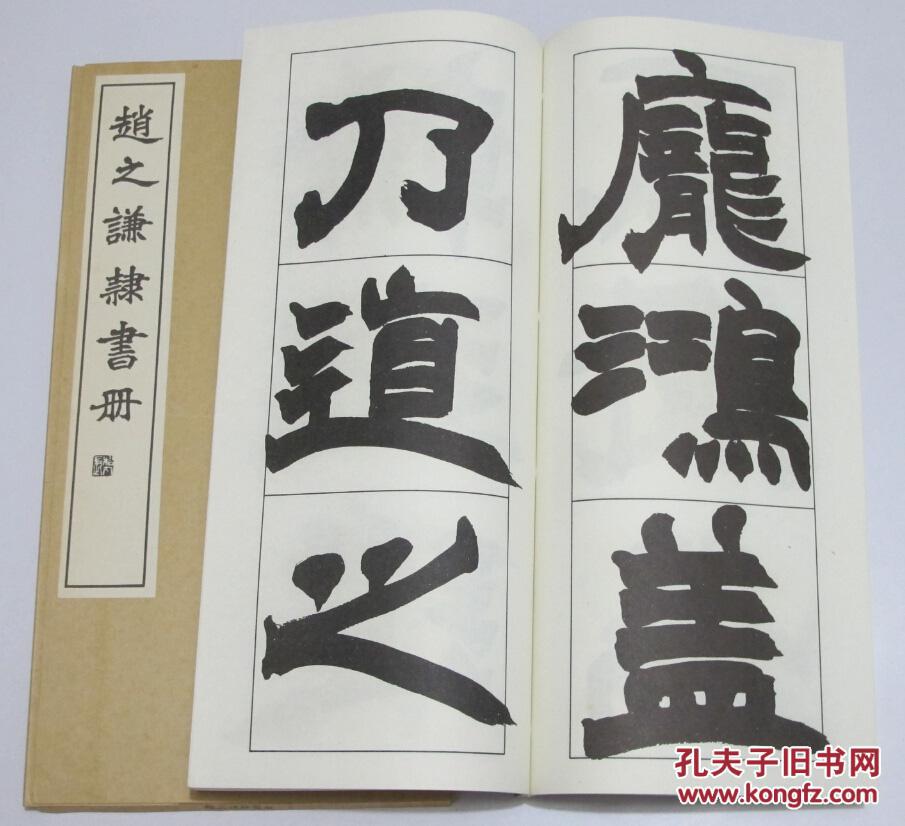 趙之謙隸書冊
龐鴻蓋
乃道之
孔夫子旧书网
www.kongfz.com